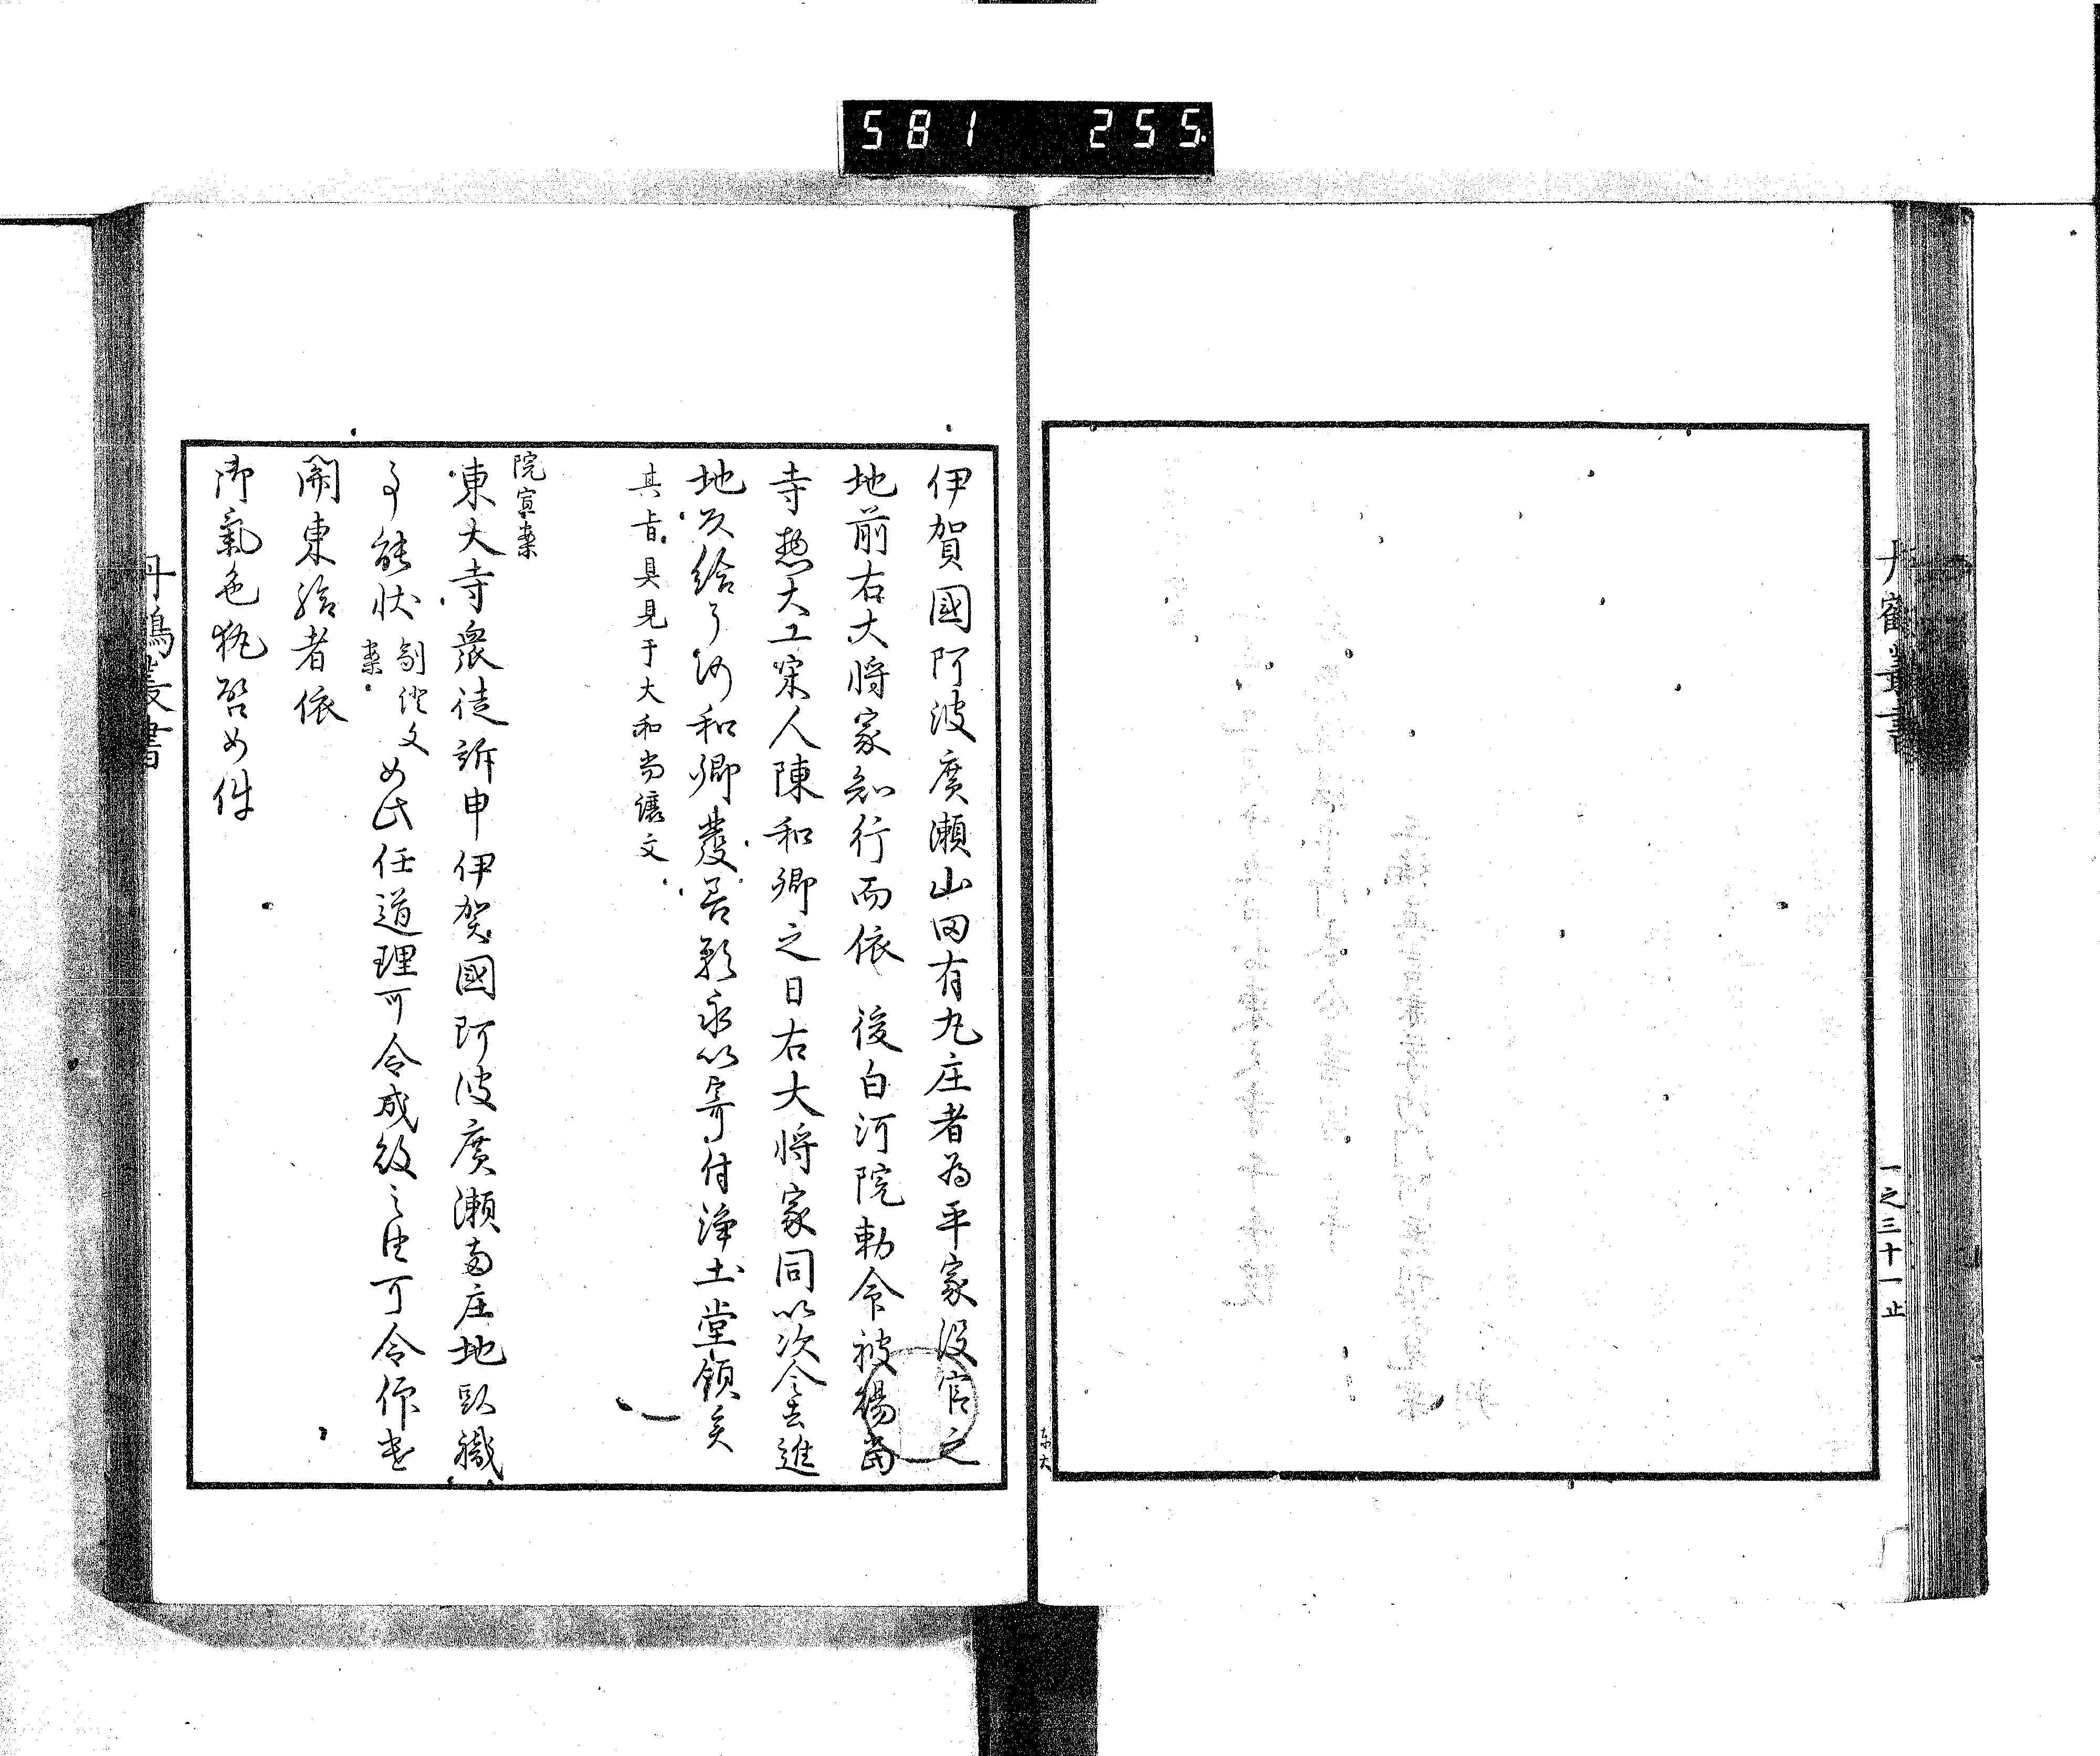 581 255
丹鶴叢書
一之三十一止
伊賀國阿波廣瀬山田有九庄者為平家没官之
地前右大将家知行而依 後白河院勅命被獦當
寺惣大工宋人陳和卿之日右大将家同以次令去進
地次給了仍和卿發善願永以寄付浄土堂領矣
其旨具見于大和尚讓文
院宣案
東大寺衆徒訴申伊賀國阿波廣瀬両庄地頭職
事解状副證文案如此任道理可令成敗之由可令仰遣
関東給者依
御氣色執啓如件
丹鶴叢書
東大